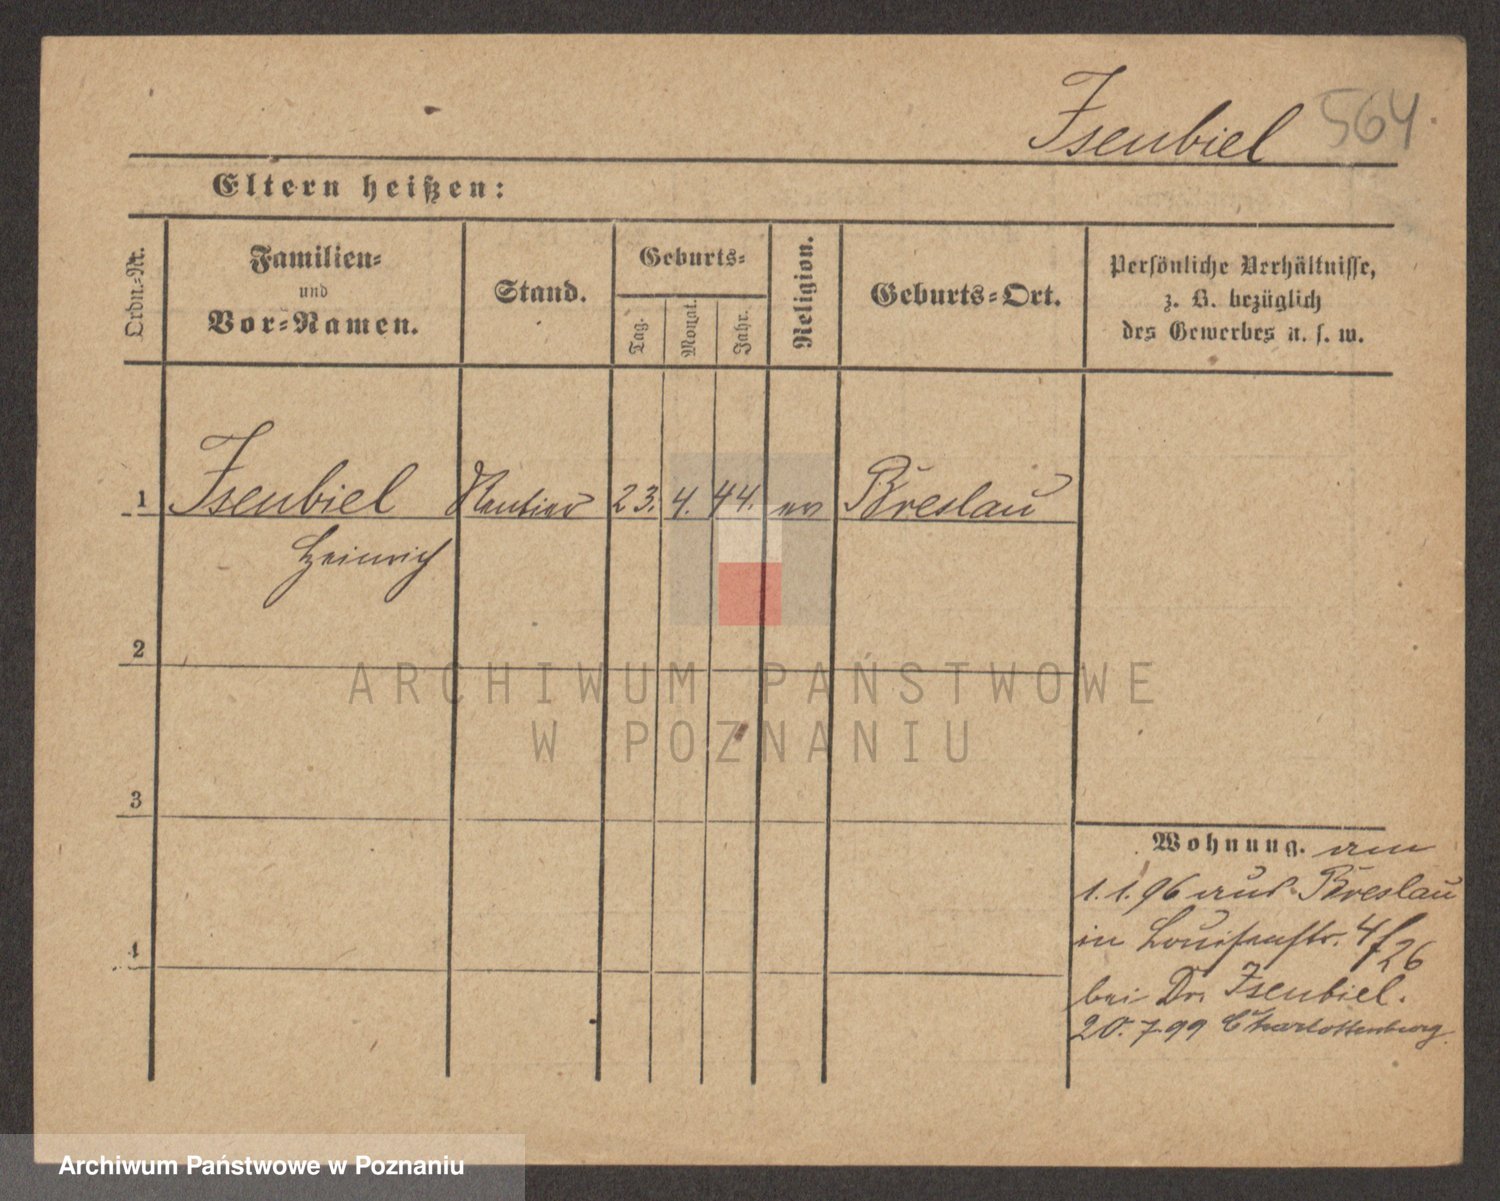 Isenbiel 564
Eltern heißen:
Ordn.-Nr.
Familien-
und
Vor-Namen.
Stand.
Geburts-
Tag.
Monat.
Jahr.
Religion.
Geburts-Ort.
Persönliche Verhältnisse,
z. B. bezüglich
des Gewerbes u. s. w.
1 Isenbiel Rentier 23. 4. 44. ev Breslau
Heinrich
2
3
4
Wohnung. am
1.1.96 aus Breslau
in Louisenstr. 4/26
bei Dr. Isenbiel.
20.7.99 Charlottenburg.
ARCHIWUM PAŃSTWOWE
W POZNANIU
Archiwum Państwowe w Poznaniu